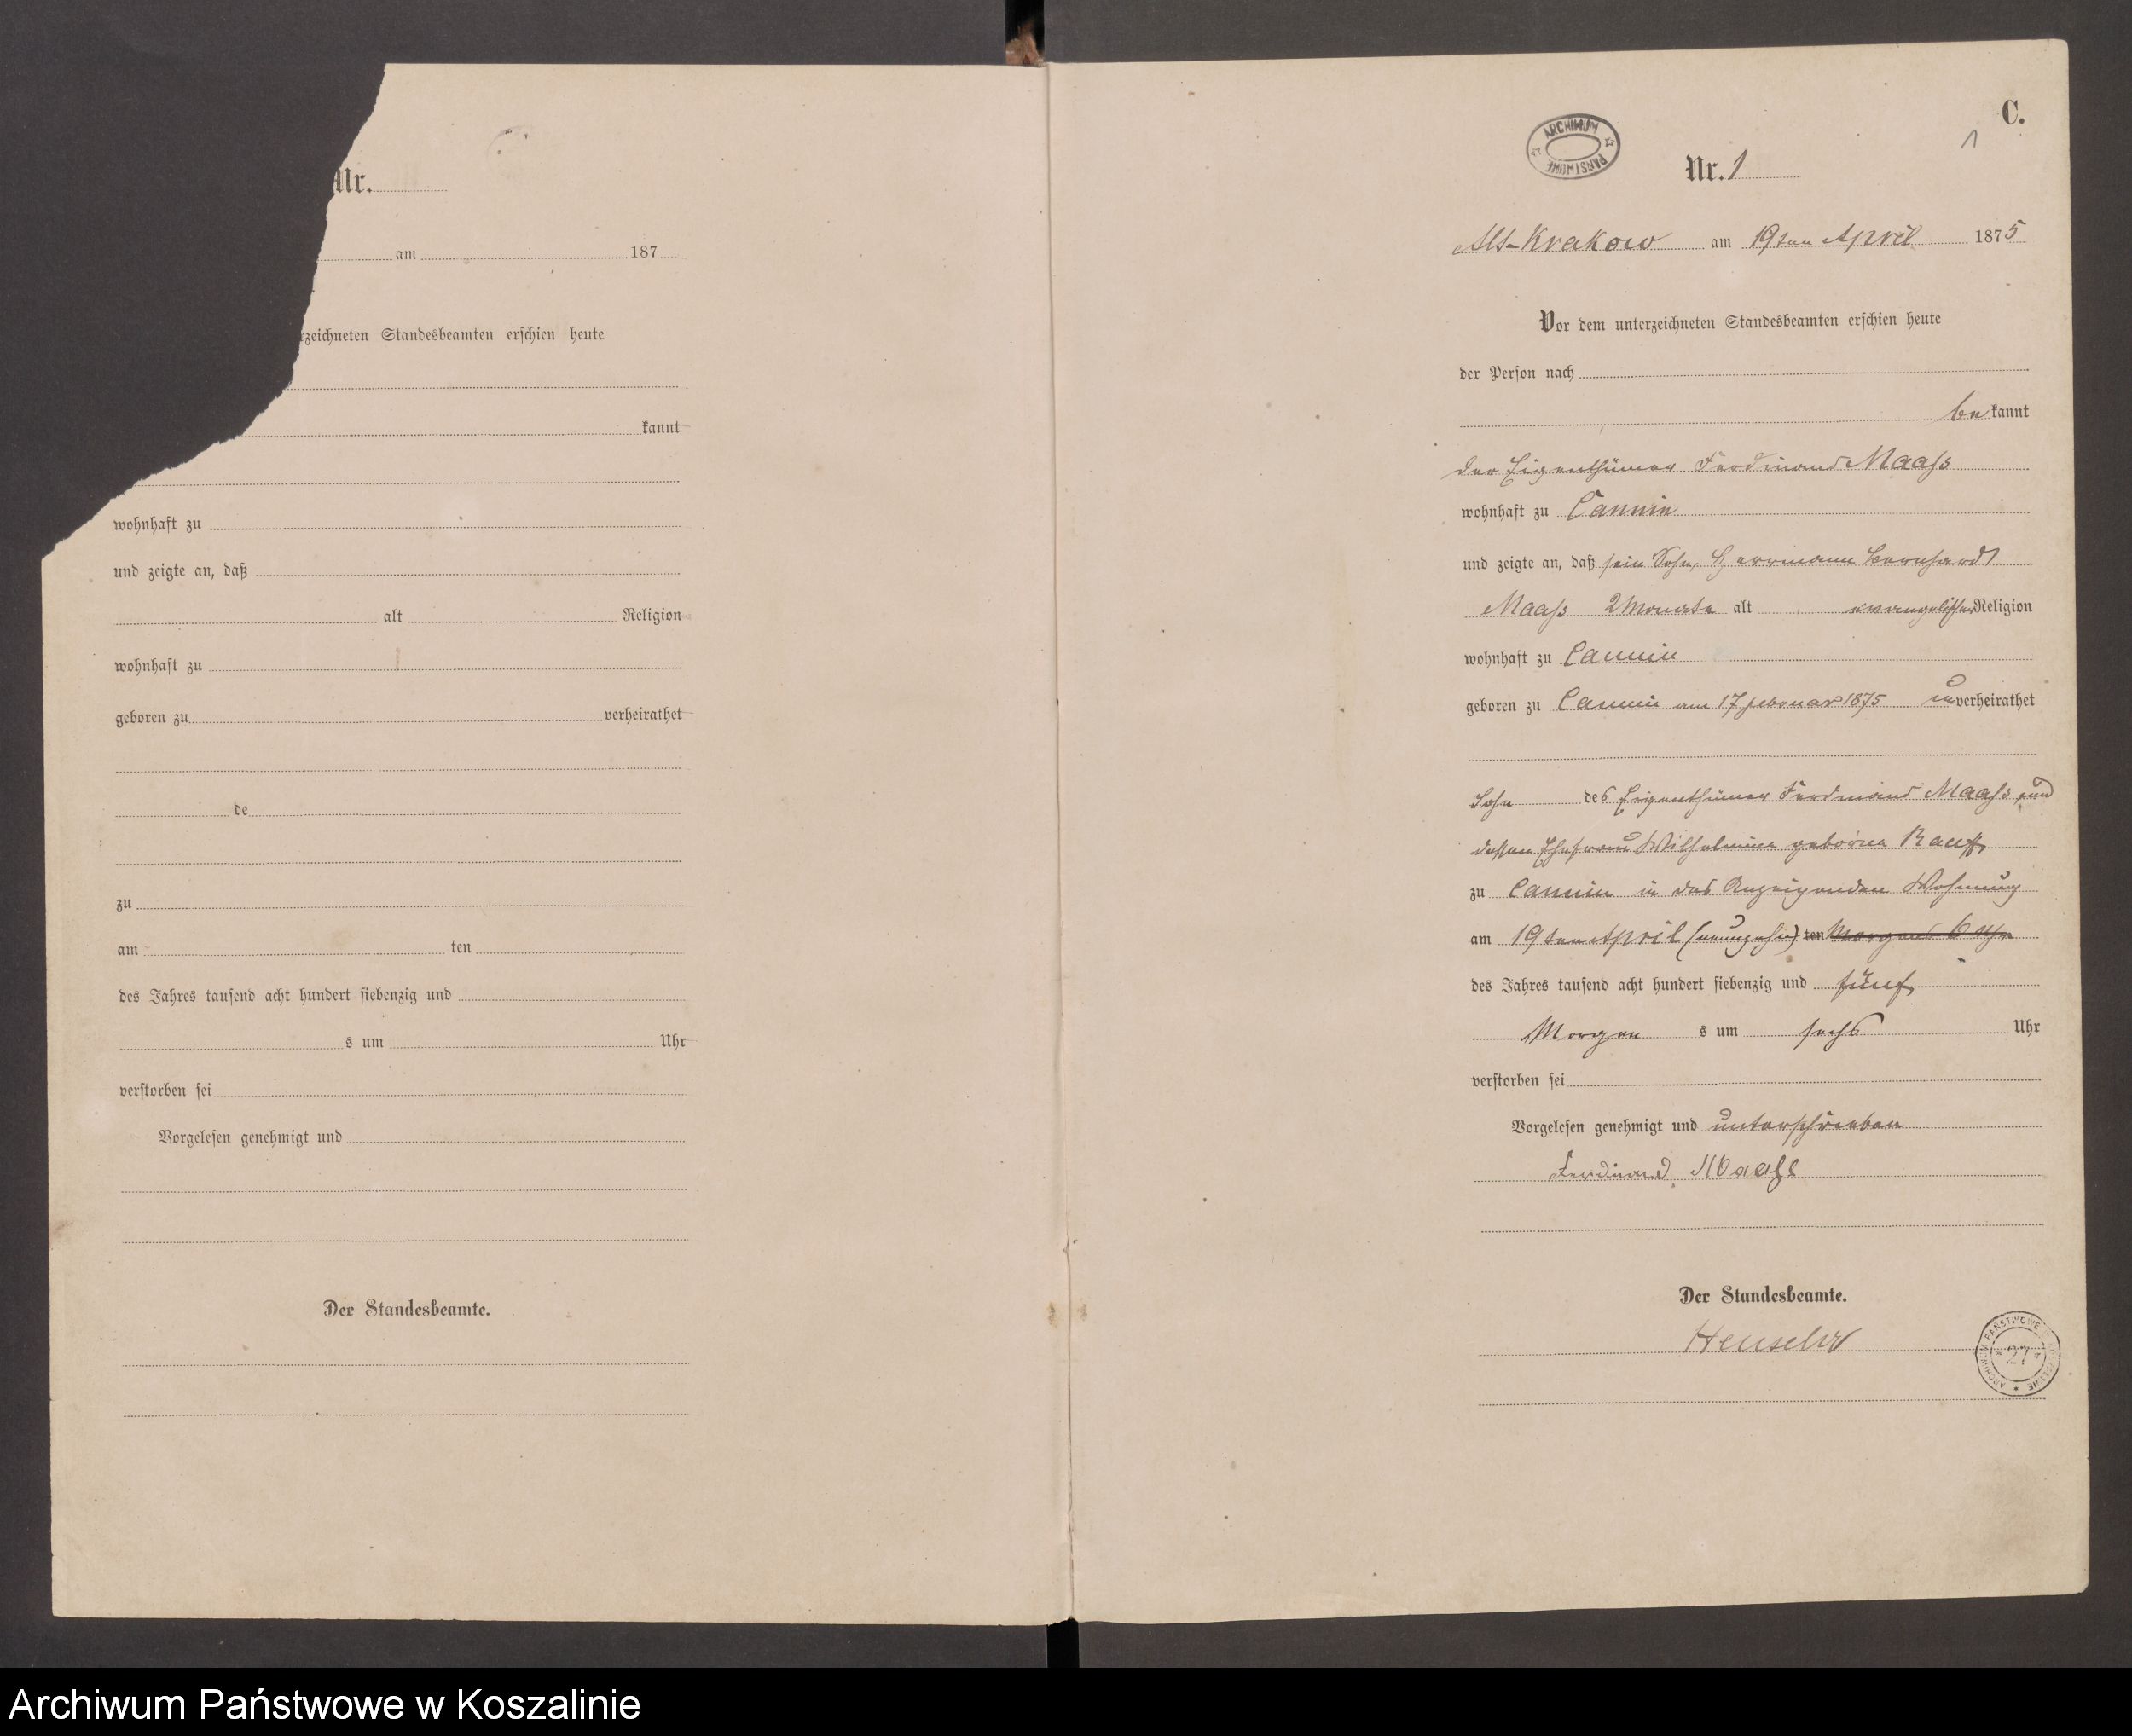 Nr.
am 187
rzeichneten Standesbeamten erschien heute
kannt
wohnhaft zu
und zeigte an, daß
alt Religion
wohnhaft zu
geboren zu verheirathet
de
zu
am ten
des Jahres tausend acht hundert siebenzig und
s um Uhr
verstorben sei
Vorgelesen genehmigt und
Der Standesbeamte.
C.
1
ARCHIWUM PAŃSTWOWE
Nr. 1
Alt-Krakow am 19ten April 1875
Vor dem unterzeichneten Standesbeamten erschien heute
der Person nach
bekannt
der Eigenthümer Ferdinand Maaß
wohnhaft zu Cannin
und zeigte an, daß sein Sohn, Herrmann Bernhardt
Maaß 2 Monate alt evangelischer Religion
wohnhaft zu Cannin
geboren zu Cannin am 17 Februar 1875 unverheirathet
Sohn des Eigenthümer Ferdinand Maaß und
dessen Ehefrau Wilhelmine geborne
zu Cannin in des Anzeigenden Wohnung
am 19ten April (neunzehn) ten Morgens 6 Uhr
des Jahres tausend acht hundert siebenzig und fünf
Morgen s um sechs Uhr
verstorben sei
Vorgelesen genehmigt und unterschrieben
Ferdinand Maaß
Der Standesbeamte.
ARCHIWUM PAŃSTWOWE
27
Archiwum Państwowe w Koszalinie